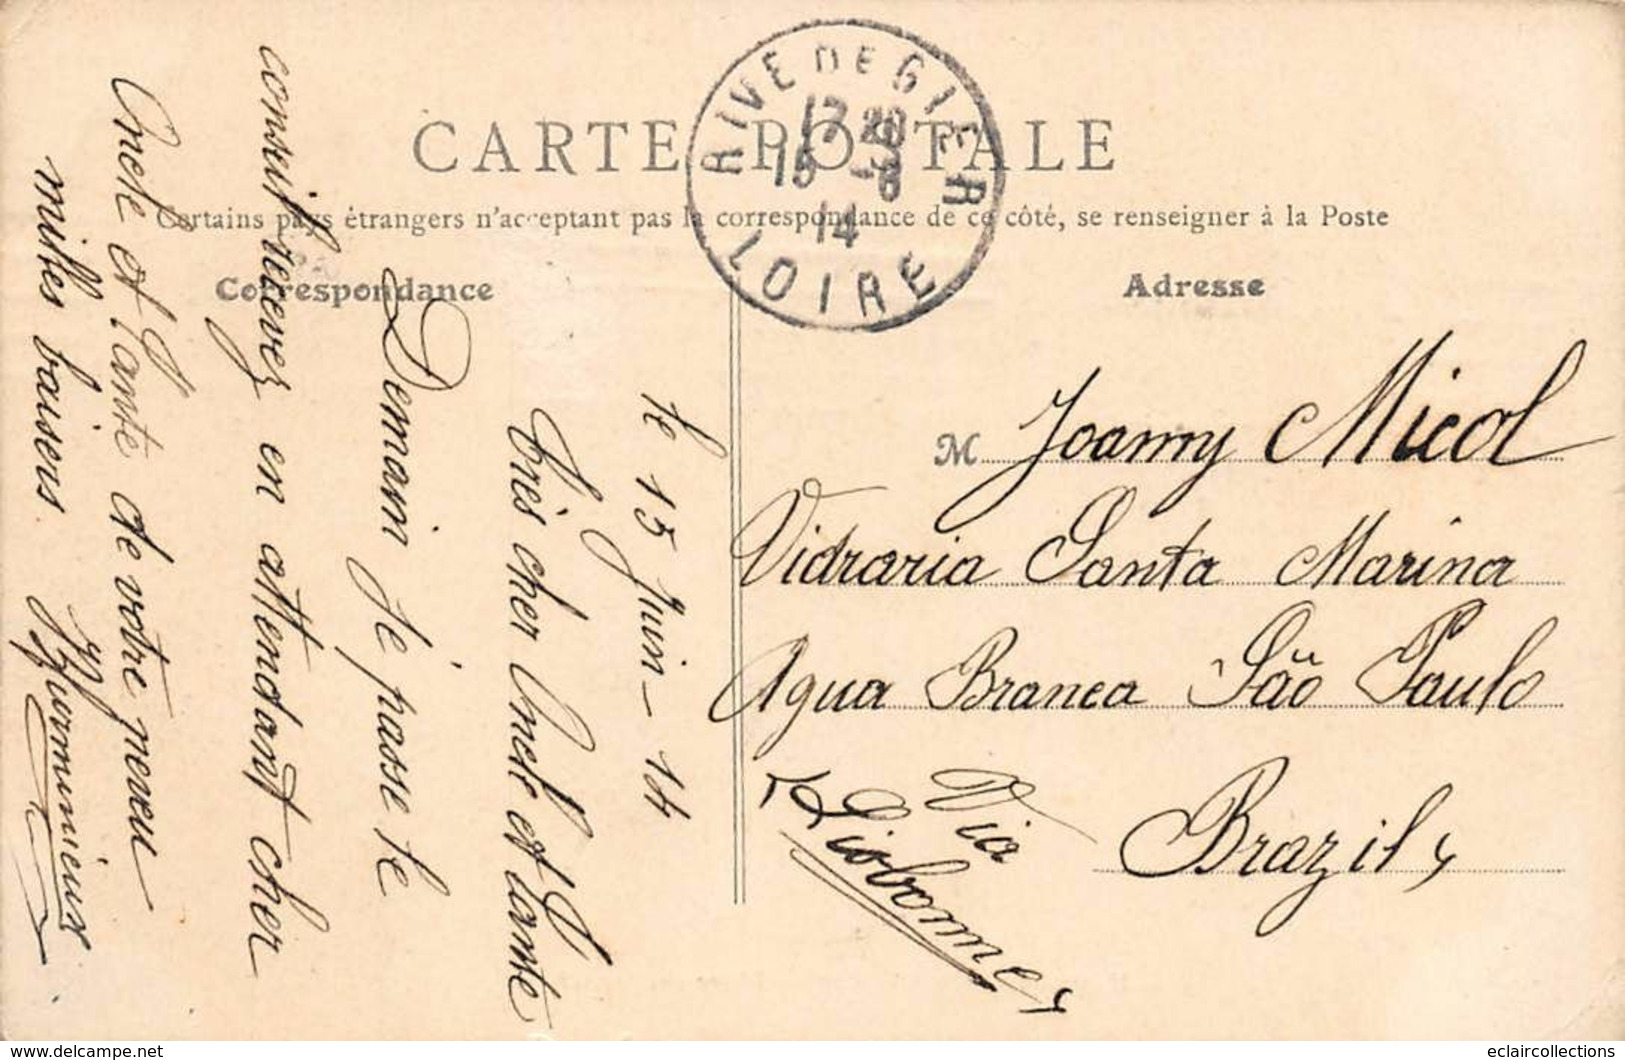 CARTE POSTALE
Certains pays étrangers n'acceptant pas la correspondance de ce côté, se renseigner à la Poste
RIVE DE GIER
17 20
15 -6
14
LOIRE
Correspondance
Adresse
le 15 Juin - 14
Très cher Oncle et Tante
Demain je passe le
conseil recevez en attendant cher
Oncle et Tante de votre neveu
milles baisers
M Joanny Micol
Vidraria Santa Marina
Agua Branca São Paulo
Brazil
Via
Lisbonne
www.delcampe.net
eclaircollections